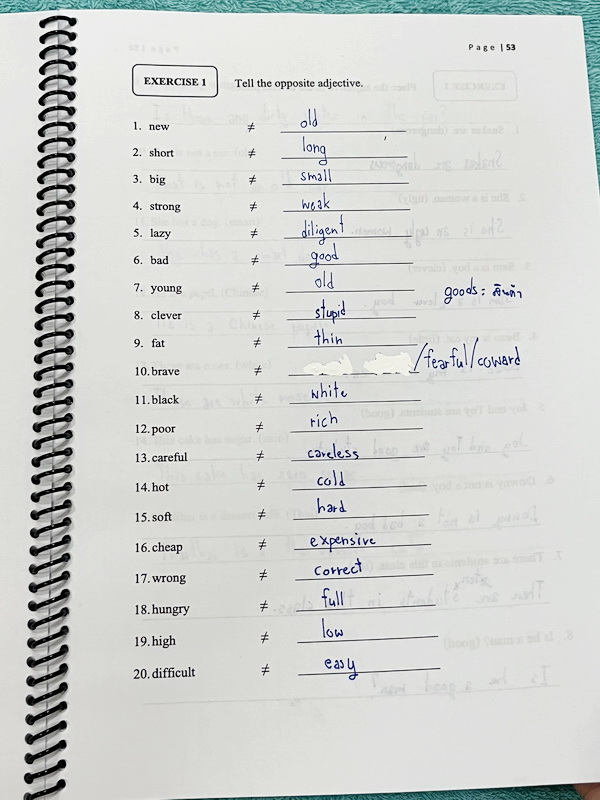 Page | 53
EXERCISE 1 Tell the opposite adjective.
1. new ≠ old
2. short ≠ long
3. big ≠ small
4. strong ≠ weak
5. lazy ≠ diligent
6. bad ≠ good
7. young ≠ old
goods : สินค้า
8. clever ≠ stupid
9. fat ≠ thin
10. brave ≠ /fearful/coward
11. black ≠ white
12. poor ≠ rich
13. careful ≠ careless
14. hot ≠ cold
15. soft ≠ hard
16. cheap ≠ expensive
17. wrong ≠ correct
18. hungry ≠ full
19. high ≠ low
20. difficult ≠ easy